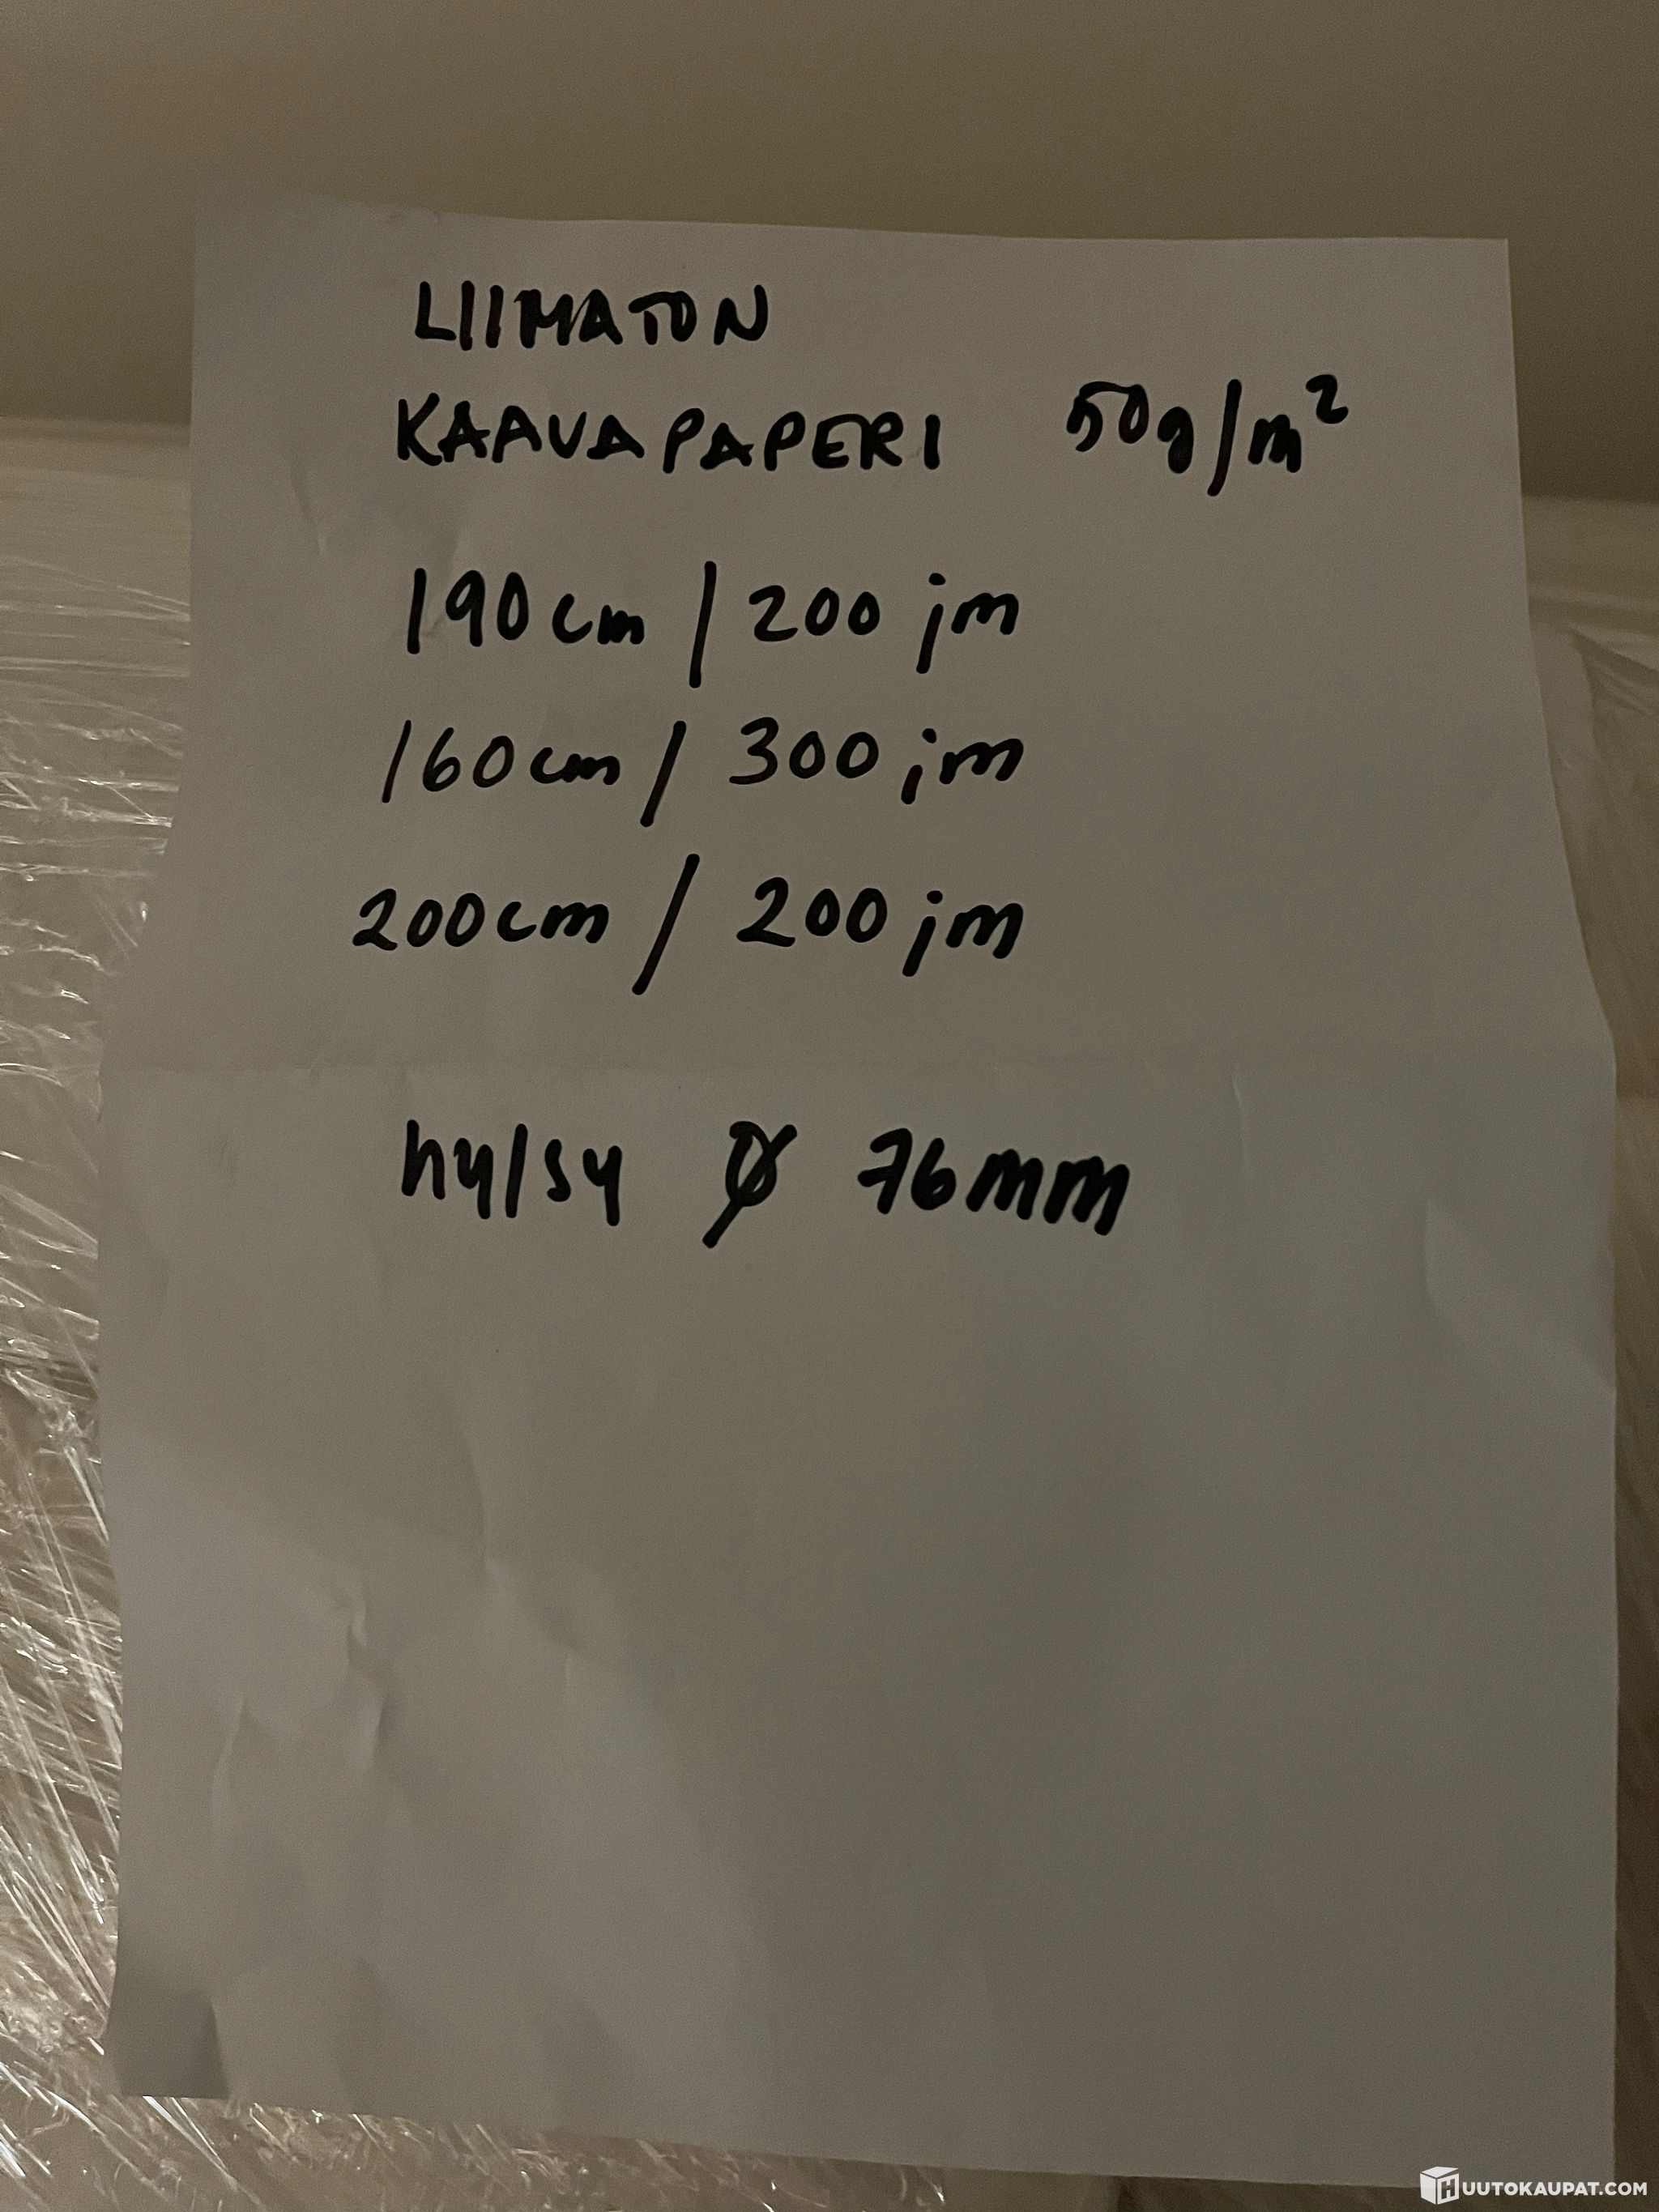 LIIMATON
KAAVAPAPERI 50g/m²
190cm / 200 jm
160cm / 300 jm
200cm / 200 jm
hylsy Ø 76mm
HUUTOKAUPAT.COM